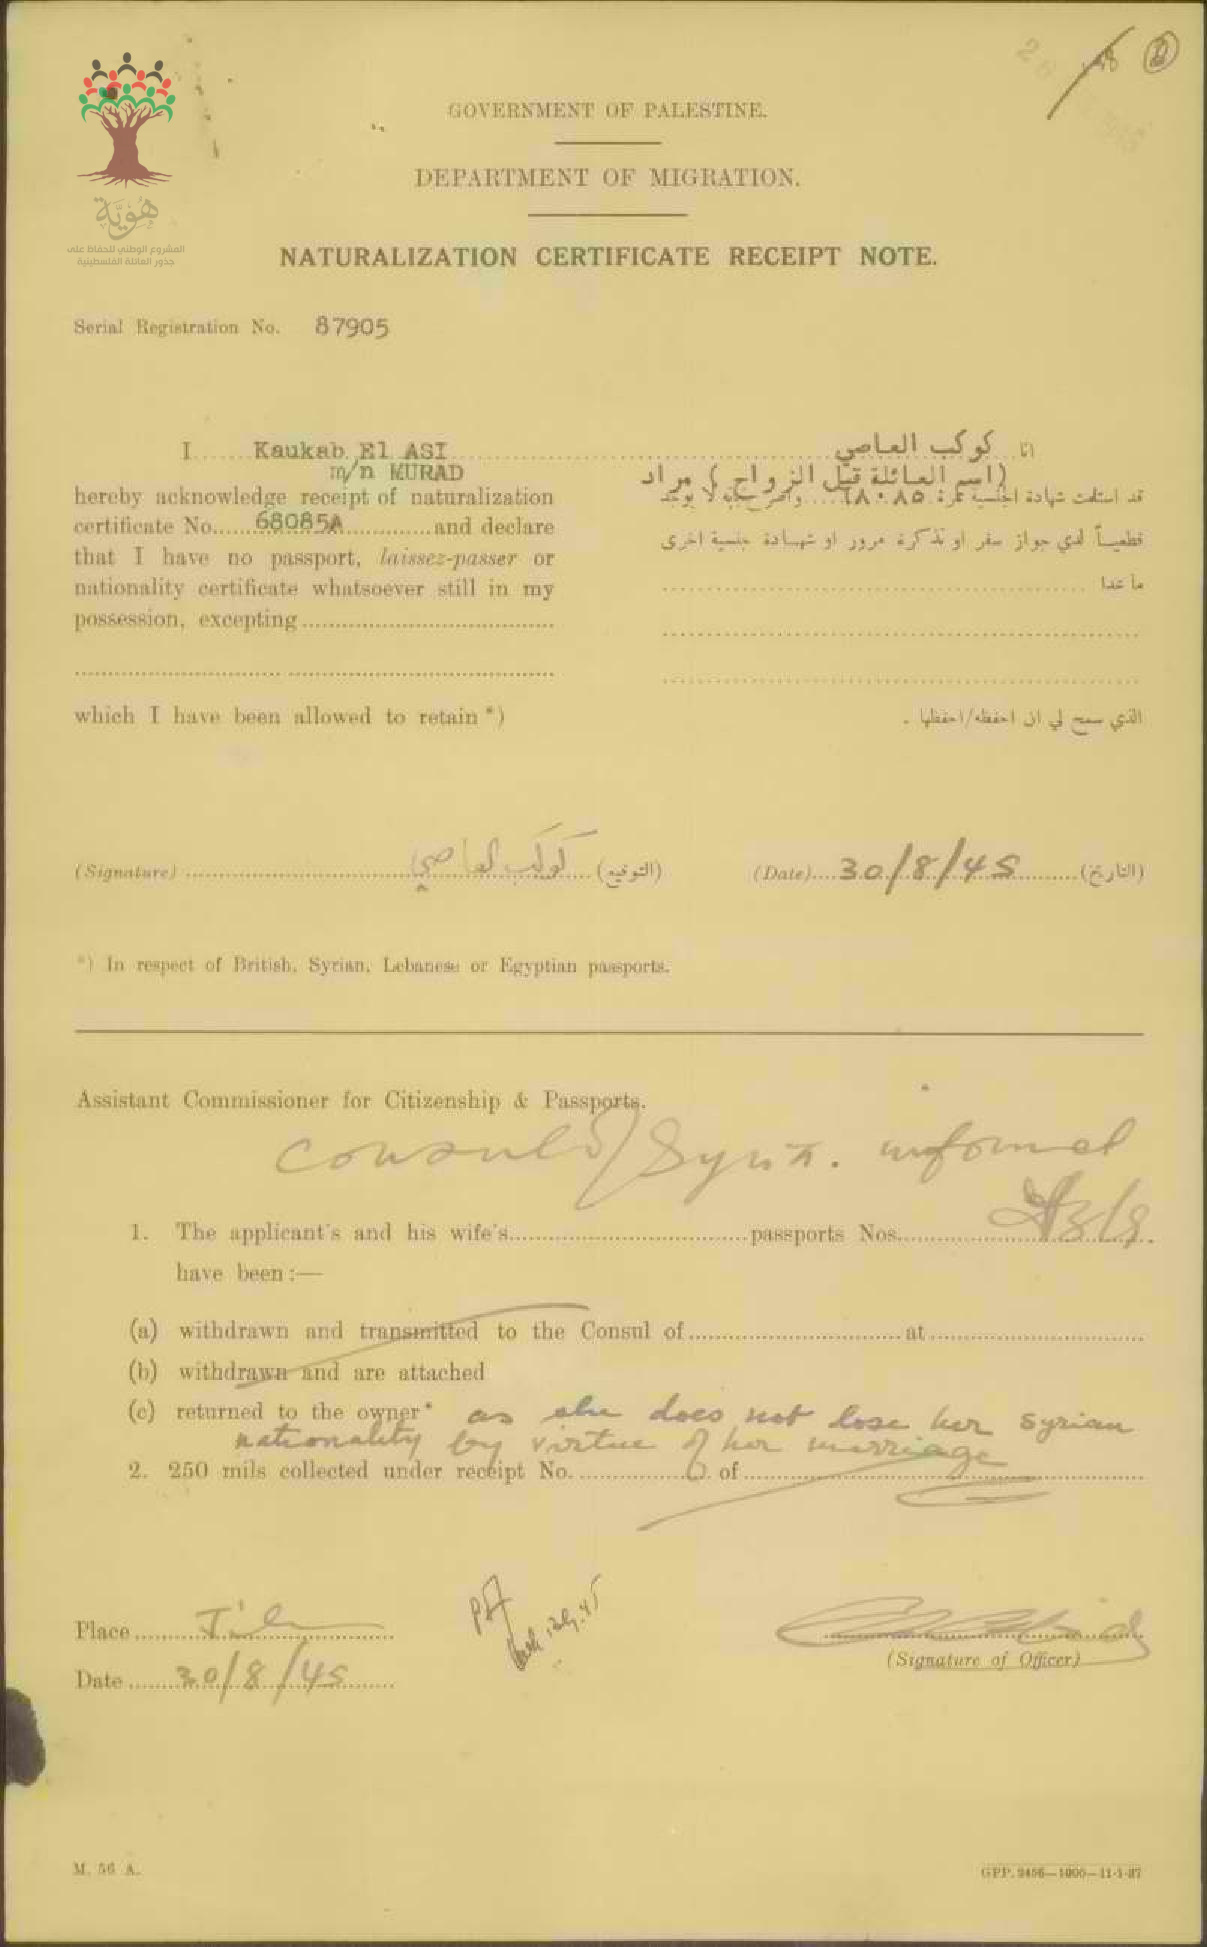 هُوِيَّة
المشروع الوطني للحفاظ على
جذور العائلة الفلسطينية
GOVERNMENT OF PALESTINE.
DEPARTMENT OF MIGRATION.
NATURALIZATION CERTIFICATE RECEIPT NOTE.
Serial Registration No. 87905
I Kaukab El ASI
m/n MURAD
hereby acknowledge receipt of naturalization
certificate No. 68085A and declare
that I have no passport, laissez-passer or
nationality certificate whatsoever still in my
possession, excepting
which I have been allowed to retain *)
انا كوكب العاصي
(اسم العائلة قبل الزواج) مراد
قد استلمت شهادة الجنسية نمرة ٦٨٠٨٥ لا يوجد
قطعياً لدي جواز سفر او تذكرة مرور او شهادة جنسية اخرى
ما عدا
الذي سمح لي ان احفظه/احفظها .
(Signature) كوكب العاصي (التوقيع) (Date) 30/8/45 (التاريخ)
*) In respect of British, Syrian, Lebanese or Egyptian passports.
Assistant Commissioner for Citizenship & Passports.
Consul of Syria. informed
1. The applicant's and his wife's passports Nos.
have been :—
(a) withdrawn and transmitted to the Consul of at
(b) withdrawn and are attached
(c) returned to the owner* as she does not lose her Syrian
nationality by virtue of her marriage
2. 250 mils collected under receipt No. of
Place
Date 30/8/45
PA
(Signature of Officer)
M. 56 A.
GPP. 2456—1000—11-1-37